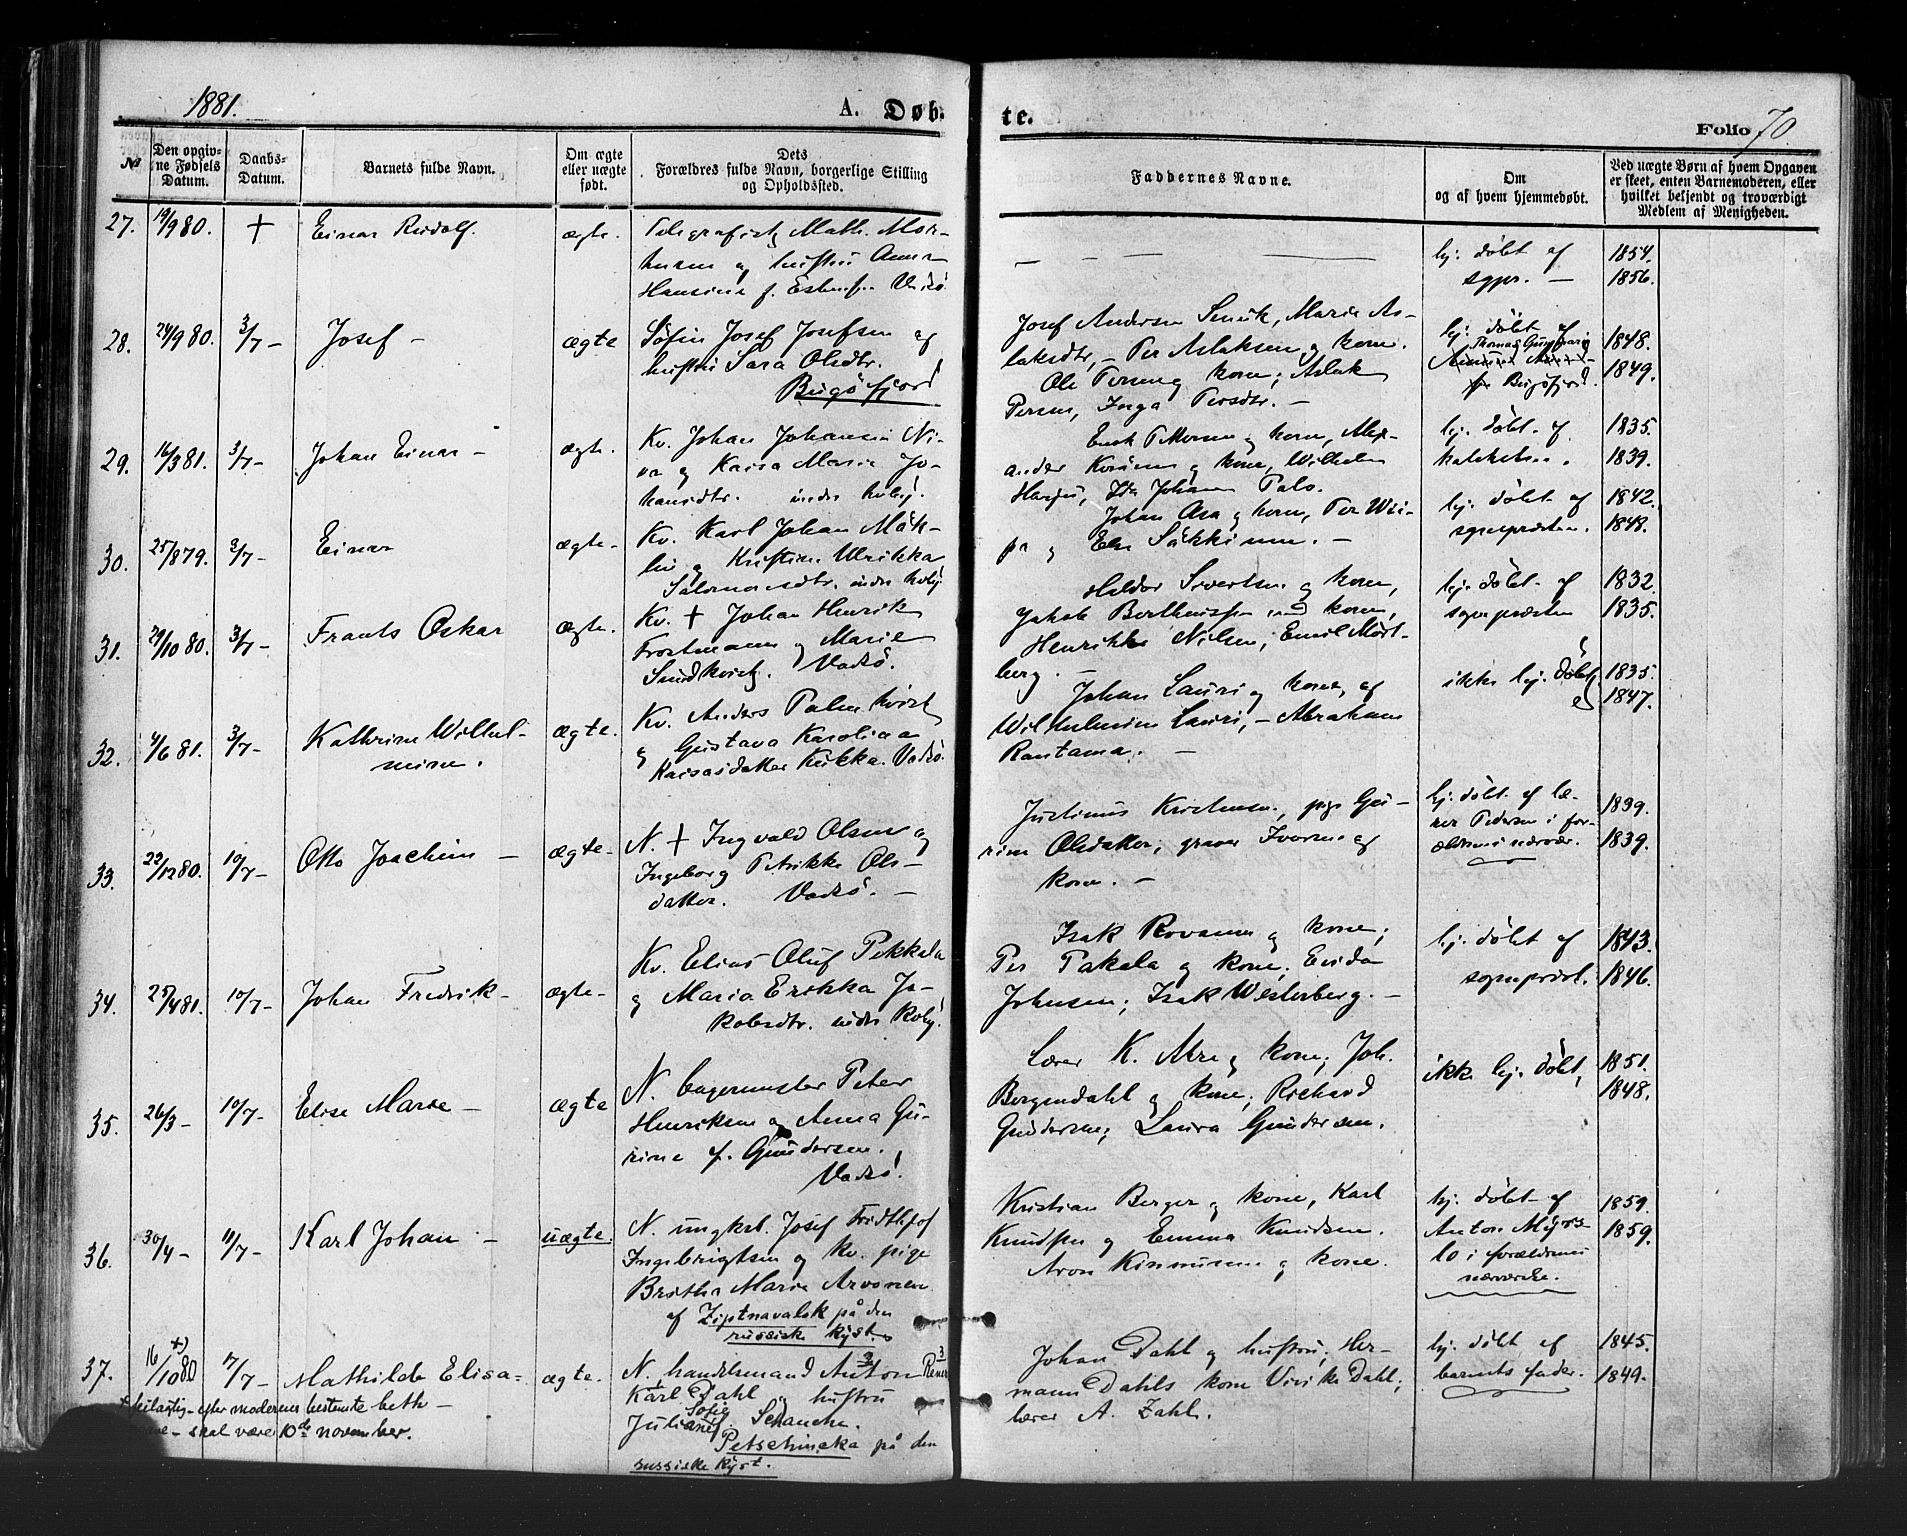 1881.
A. Døb-
te.
Folio 70.
№
Den opgiv-
ne Fødsels
Datum.
Daabs-
Datum.
Barnets fulde Navn.
Om ægte
eller uægte
født.
Dets
Forældres fulde Navn, borgerlige Stilling
og Opholdssted.
Faddernes Navne.
Om
og af hvem hjemmedøbt.
Ved uægte Børn af hvem Opgaven
er skeet, enten Barnemoderen, eller
hvilket bekjendt og troværdigt
Medlem af Menigheden.
27. 19/9 80. + Einar Rudolf. ægte.
Telegrafist Math. Mor-
tensen og hustru Anna
Hansine f. Vadsö
— — —
hj. døbt af
sgpr. —
1854.
1856.
28. 24/9 80. 3/7 — Josef — ægte
Söfin Josef Josefsen og
hustru Sara Olsdtr.
Bugöfjord
Josef Andersen Maria As-
laksdtr, — Per Aslaksen og kone.
Ole Persen og kone; Aslak
Persen, Inga Persdtr. —
hj. döbt af
Thomas
Bugöfjord.
1848.
1849.
29. 16/3 81. 3/7 — Johan Einar — ægte.
Kv. Johan Johansen Ni-
va og Kaisa Maria Jo-
hansdtr. indre kvbj.
Erik Pettersen og kone, Alex-
ander og kone, Wilhelm
Harju, Ida Johan Palo.
hj. döbt af
1835.
1839.
30. 25/8 79. 3/7 — Einar ægte —
Kv. Karl Johan Mäk-
lin og Kristine Ulrikka
Salomonsdtr. indre kvbj.
Johan Asa og kone, Per Wii-
pa og Else —
hj. döbt af
sognepresten. —
1842.
1848.
31. 29/10 80. 3/7 — Frants Oskar ægte.
Kv. + Johan Henrik
Frostmann og Marie
Sundkvist. Vadsö.
Haldor Sivertsen og kone,
Jakob Berthinissen med kone,
Henrikke Nilsen; Emil Mört-
berg. —
hj. döbt af
sognepresten
1832.
1835.
32. 4/6 81. 3/7 — Kathrine Wilhel-
mine. ægte.
Kv. Anders Palmkvist
og Gustava Karolina
Kaisasdatter Kukka. Vadsö.
Johan Lauri og kone, af
Wilhelmine Lauri, — Abraham
Rantama. —
ikke hj. döbt
1835.
1847.
33. 22/12 80. 10/7 — Otto Joachim — ægte —
N. + Ingvald Olsen og
Ingeborg Petrikke Ols-
datter. Vadsö. —
Justinus Kristensen, pige Gu-
rine Olsdatter, graver Iversen og
kone. —
hj. döbt af læ-
rer Pedersen i for-
ældrenes nærvær.
1839.
1839.
34. 25/4 81. 10/7 — Johan Fredrik — ægte —
Kv. Elias Oluf Pekkala
og Maria Erikka Ja-
kobsdtr. indre kvbj.
Isak Rovanen og kone;
Per Takala og kone; Evida
Johnsen; Isak Westerberg. —
hj. döbt af
sogneprest.
1843.
1846.
35. 26/3 — 10/7 — Elise Marie — ægte
N. bagermester Peter
Henriksen og Anna Gu-
rine f. Gundersen.
Vadsö!
Lærer K. Abre og kone; Joh.
Bergendahl og kone; Richard
Gundersen; Laura Gundersen.
ikke hj. döbt,
1851.
1848.
36. 30/4 — 11/7 — Karl Johan — uægte.
N. ungkrl. Josef Fridthjof
Ingebrigtsen og kv. pige
Britha Maria Arvonen
af Ziptnavalsk på den
russiske kyst.
Kristian Berger og kone, Karl
Knudsen og Emma Knudsen.
Aron Kinnunen og kone.
hj. döbt af
Anton Myrs-
lo i forældrenes
nærværelse.
1859.
1859.
37. 16/10 80 +) 17/7 — Mathilde Elisa — ægte.
N. handelsmand Anton
Karl Dahl og hustru
Juliane Sofie f. Schanche.
Petschincka på den
russiske kyst.
Johan Dahl og hustru; Her-
mann Dahls kone Vivike Dahl;
lærer A. Zahl.
hj. döbt af
barnets fader.
1845.
1849.
+ feilagtig — efter moderens bestemte beth-
— skal være 10de november.